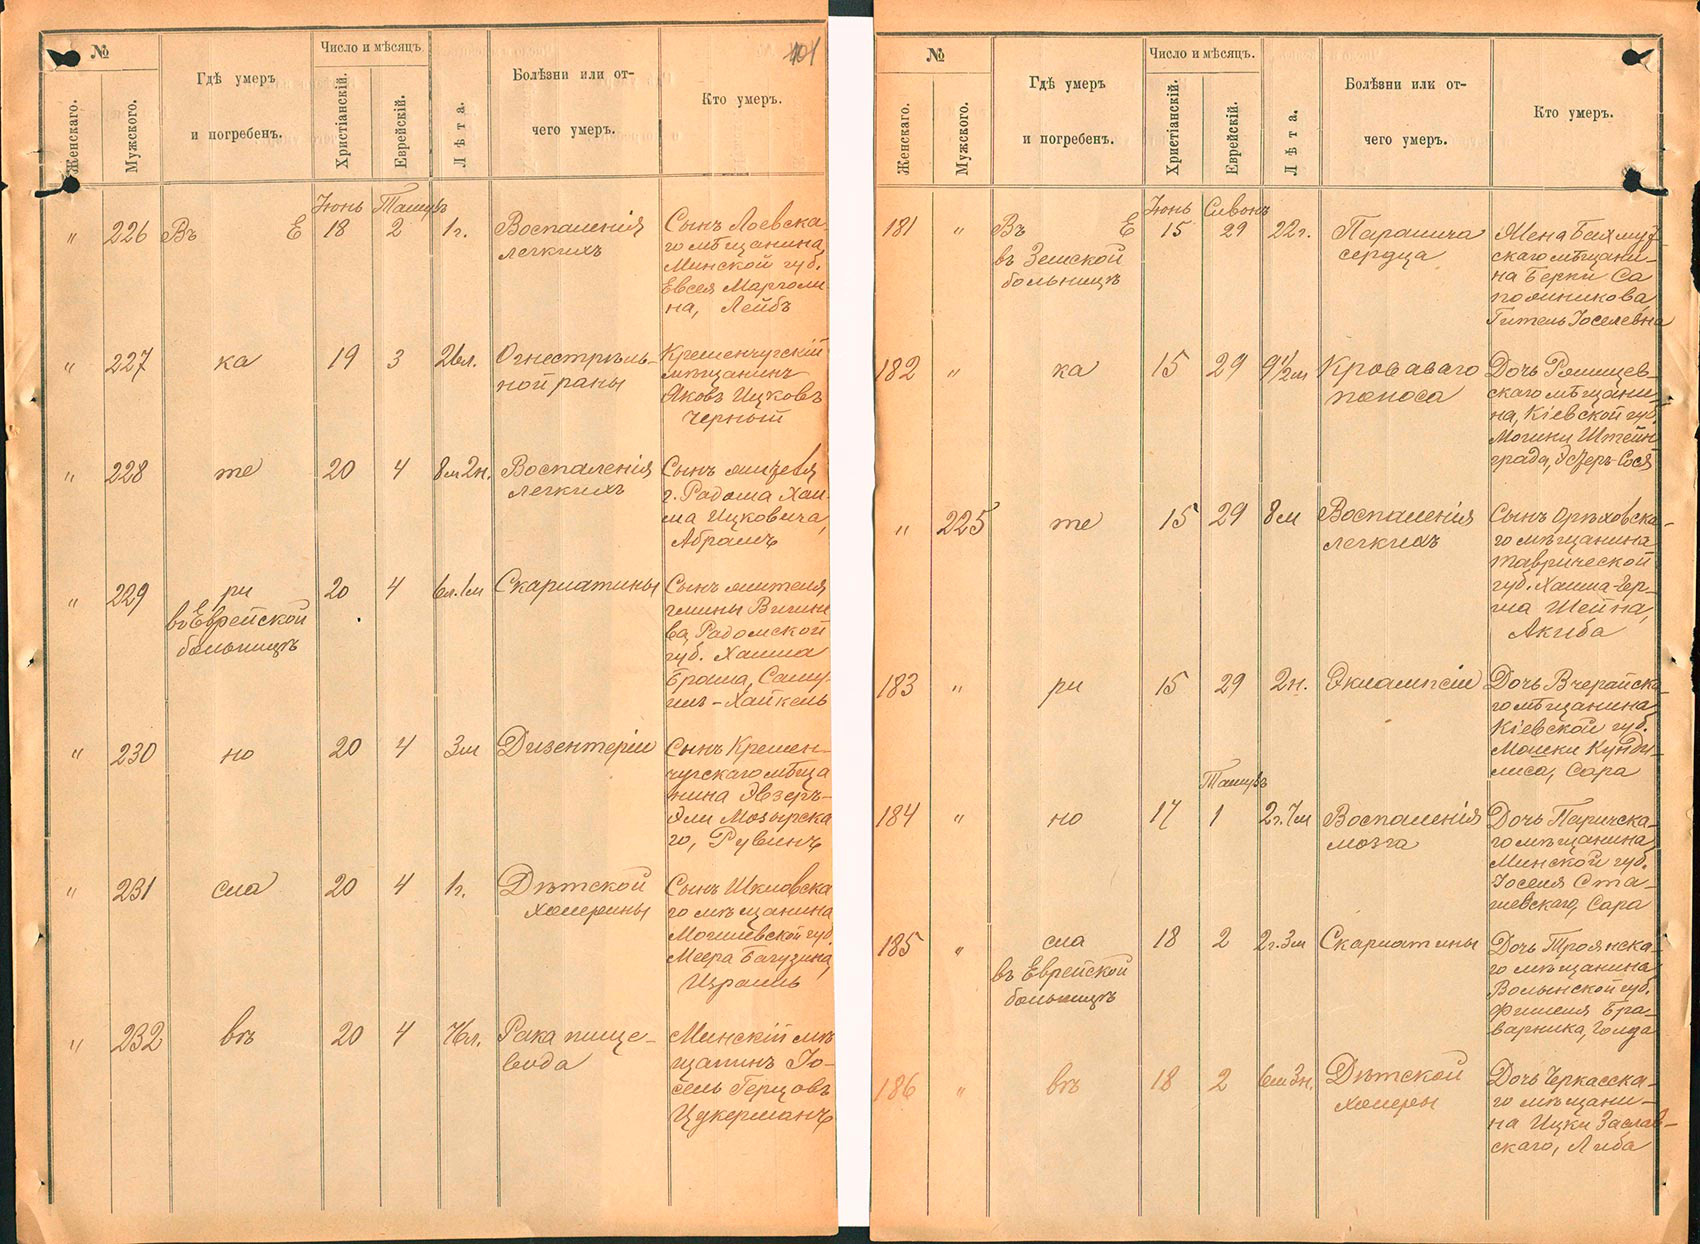 №
Женскаго.
Мужского.
Гдѣ умеръ
и погребенъ.
Число и мѣсяцъ
Христіанскій.
Еврейскій.
Лѣта.
Болѣзни или от-
чего умеръ.
Кто умеръ.
Іюнь Тамузъ
" 226 Въ Е 18 2 1г. Воспаленія
легкихъ
Сынъ Лоевска
го мѣщанина
Минской губ.
Евсея Марголи
на, Лейбъ
" 227 ка 19 3 26л. Огнестрѣль-
ной раны
Кременчугскій
мѣщанинъ
Яковъ Ицковъ
Черный
" 228 те 20 4 8м 2н. Воспаленія
легкихъ
Сынъ
г. Радома Хаи
ма Ицковича,
Абрамъ
" 229 ри 20 4 6л.1м Скарлатины
въ Еврейской
больницѣ
Сынъ жителя
гмины
Радомской
губ. Хаима
Брама, Саму-
иль-Хайкель
" 230 но 20 4 3м Дизентеріи
Сынъ Кремен-
чугскаго мѣща
нина Элзеръ-
Эли Мозырска
го, Рувинъ
" 231 сла 20 4 1г. Дѣтской
холерины
Сынъ Шкловска
го мѣщанина
Могилевской губ.
Меера Багузина,
Израиль
" 232 въ 20 4 76л. Рака пище-
вода
Минскій мѣ
щанинъ Іо-
сель Герцовъ
Цукерманъ
№
Женскаго.
Мужского.
Гдѣ умеръ
и погребенъ.
Число и мѣсяцъ.
Христіанскій.
Еврейскій.
Лѣта.
Болѣзни или от-
чего умеръ.
Кто умеръ.
Іюнь Сивонъ
181 " Въ Е 15 29 22г. Паралича
сердца
въ Земской
больницѣ
Жена Бахмут-
скаго мѣщани-
на Берки Са
пожникова
Гитель Іоселевна
182 " ка 15 29 9 1/2м Кроваваго
поноса
Дочь Ржищев-
скаго мѣщани-
на, Кіевской губ.
Мошки Штейн
града, Эстеръ-Сося
" 225 те 15 29 8м Воспаленія
легкихъ
Сынъ Орѣховска-
го мѣщанина
Таврической
губ. Хаима-Гер-
ша Шейна,
Акиба
183 " ри 15 29 2н. Эклампсіи
Дочь Вчерайска-
го мѣщанина
Кіевской губ.
Мошки Кунди-
лиса, Сара
Тамузъ
184 " но 17 1 2г.7м Воспаленія
мозга
Дочь Паричска-
го мѣщанина
Минской губ.
Іоселя Ста-
шевскаго, Сара
185 " сла 18 2 2г.3м Скарлатины
въ Еврейской
больницѣ
Дочь Троянска-
го мѣщанина
Волынской губ.
Фишеля Бра-
варника, Голда
186 " въ 18 2 6м 3н. Дѣтской
холеры
Дочь Черкасска-
го мѣщани-
на Ицки Заслав-
скаго, Либа